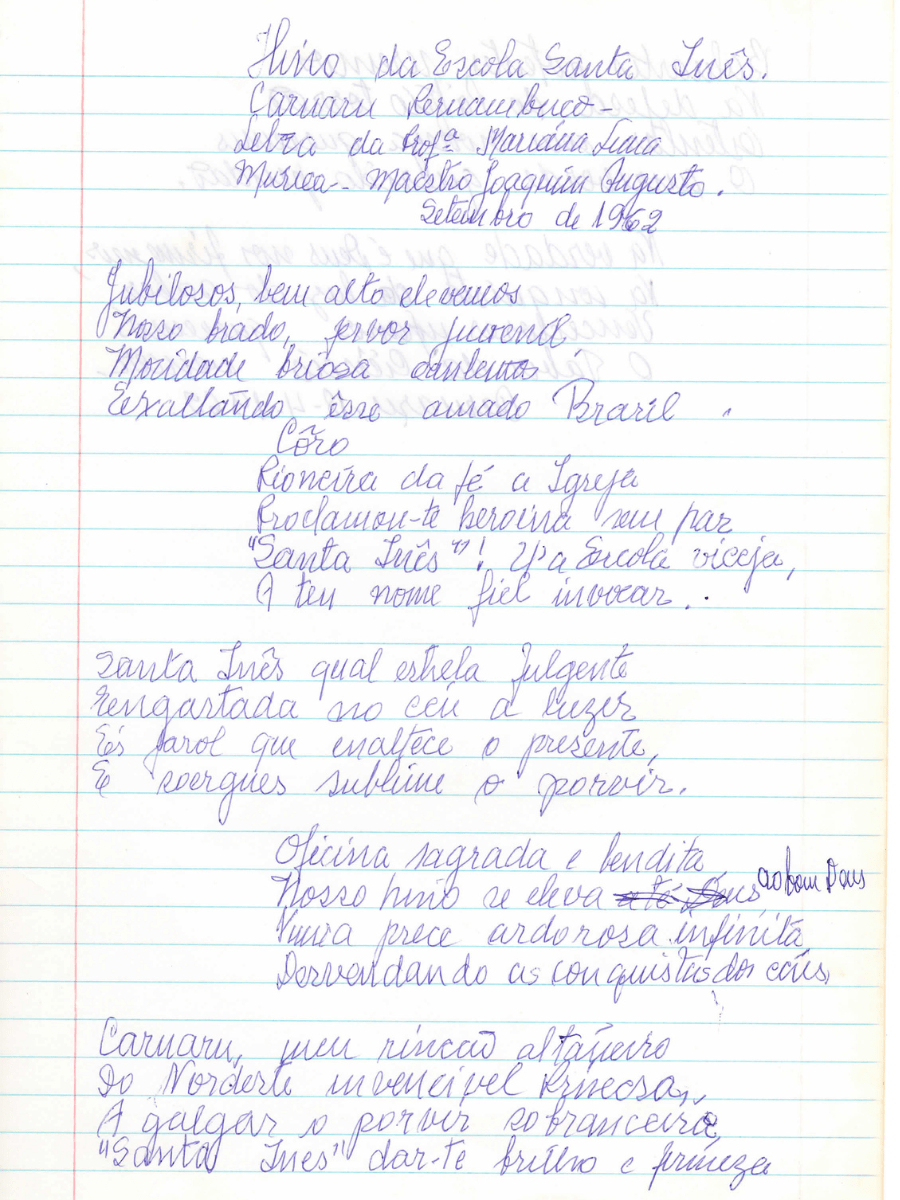 Hino da Escola Santa Inês.
Caruaru Pernambuco-
Letra da Profª Mariána Lima
Musica-- Maestro Joaquim Augusto.
Setembro de 1962
Jubilosos, bem alto elevemos
Nosso brado, fervor juvenil
Mocidade briosa cantemos
Exaltando êsse amado Brasil.
Côro
Pioneira da fé a Igreja
Proclamou-te heroina sem par
"Santa Inês"! a Escola viceja,
A teu nome fiel invocar.
Santa Inês qual estrela fulgente
Engastada no céu a luzir
És farol que enaltece o presente,
E soergues sublime o porvir.
Oficina sagrada e bendita
Nosso hino se eleva ao bom Deus
Numa prece ardorosa infinita
Desvendando as conquistas dos céus,
Caruaru, meu rincão altaneiro
Do Nordeste invencivel Princesa,
A galgar o porvir sobranceiro,
"Santa Ines" dar-te brilho e firmeza